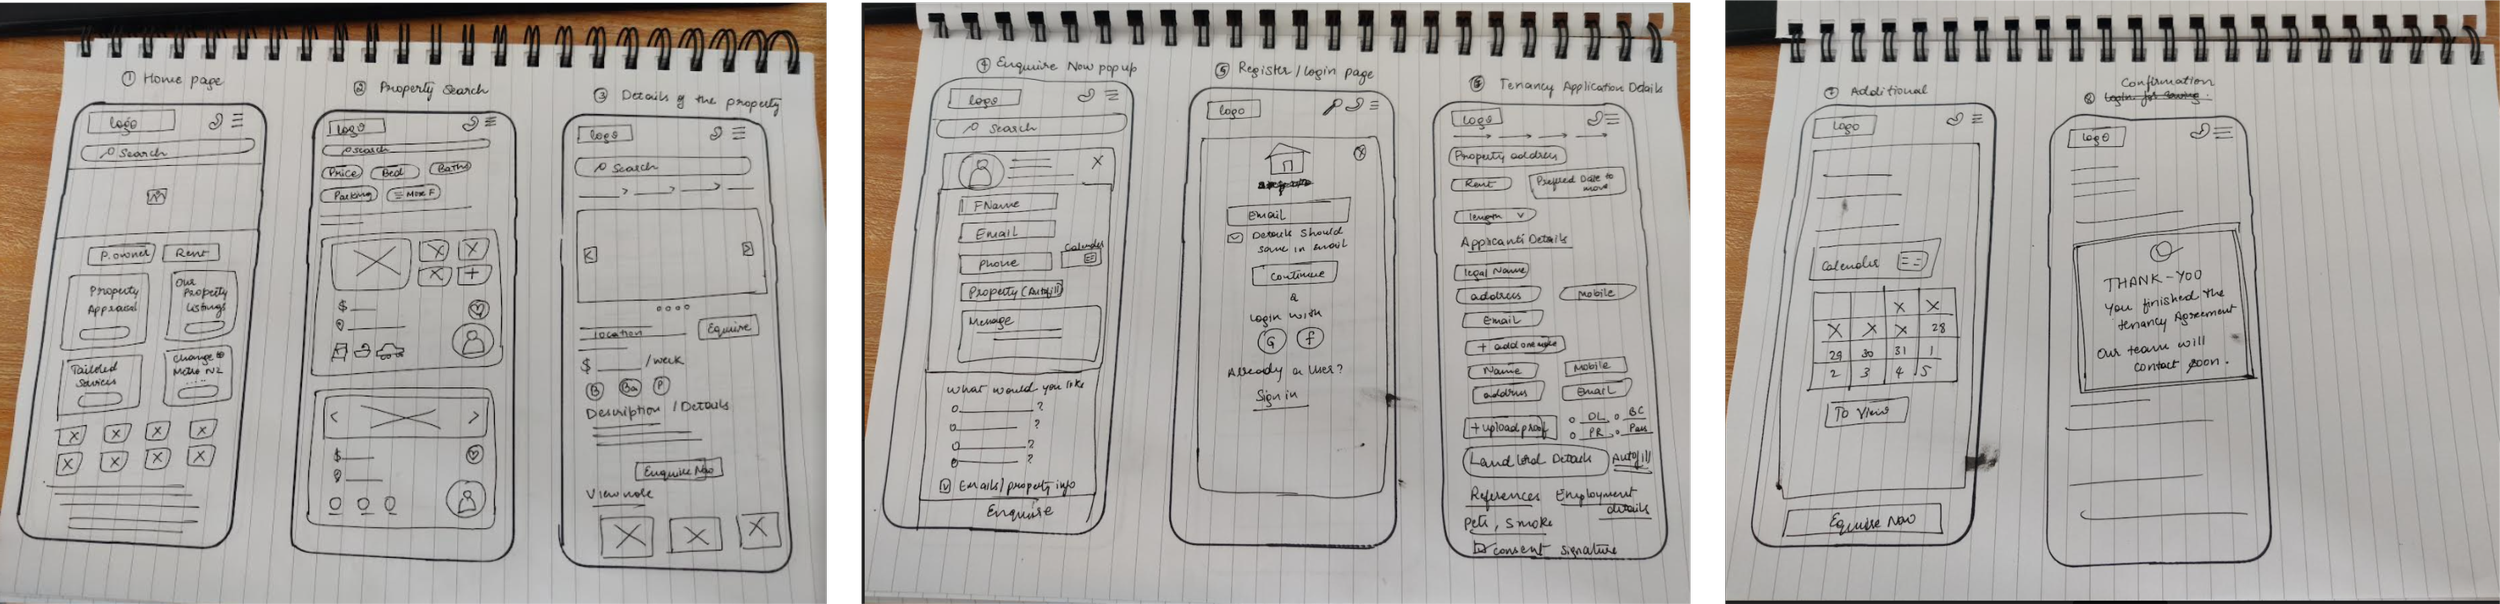 ① Home page
logo
Search
P. owner
Rent
Property
Appraisal
Our
Property
Listings
Tailored
Services
Change to
Metro NZ
② Property Search
Logo
Search
Price
Bed
Baths
Parking
More F
$
$
③ Details of the property
logo
Search
location
Equire
$ /week
B
Ba
P
Description / Details
Enquire Now
View note
④ Enquire Now pop up
logo
Search
X
FName
Email
Phone
Calender
Property (Autofill)
Message
What would you like
?
?
?
?
Emails/property info
Enquire
⑤ Register / login page
logo
Email
Details should
same in email
Continue
login with
G
f
Already a User?
Sign in
⑥ Tenancy Application Details
Logo
Property address
Rent
Length
Applicant Details
legal Name
address
mobile
Email
Name
Mobile
address
Email
+ upload proof
DL
BC
PR
Pass
Land lord Details
Autofill
References
Employment
details
Pets, Smoke
consent signature
⑦ Additional
Logo
Calender
X X
X X X 28
29 30 31 1
2 3 4 5
To View
Equire Now
Confirmation
⑧ Login for Saving
Logo
THANK-YOO
You finished the
tenancy Agreement
Our team will
contact soon.